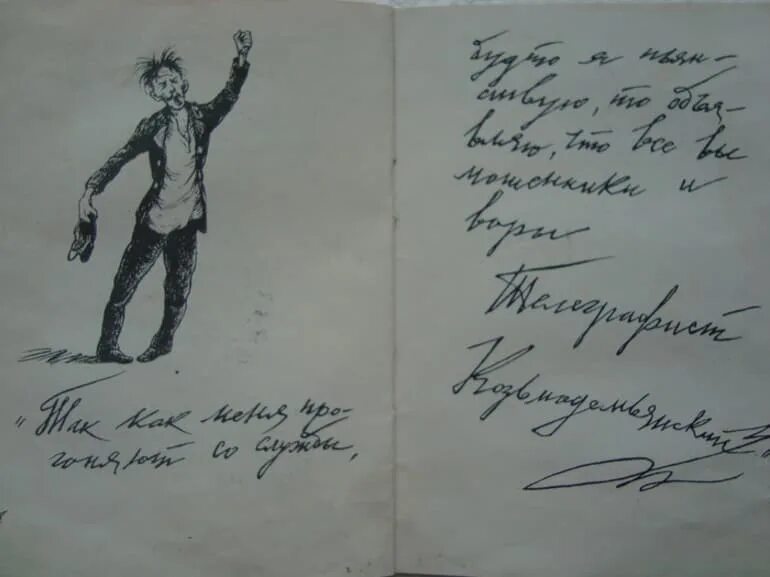 „Так как меня про-
гоняют со службы,
будто я пьян-
ствую, то объя-
вляю, что все вы
мошенники и
воры
Телеграфист
Козьмодемьянский"